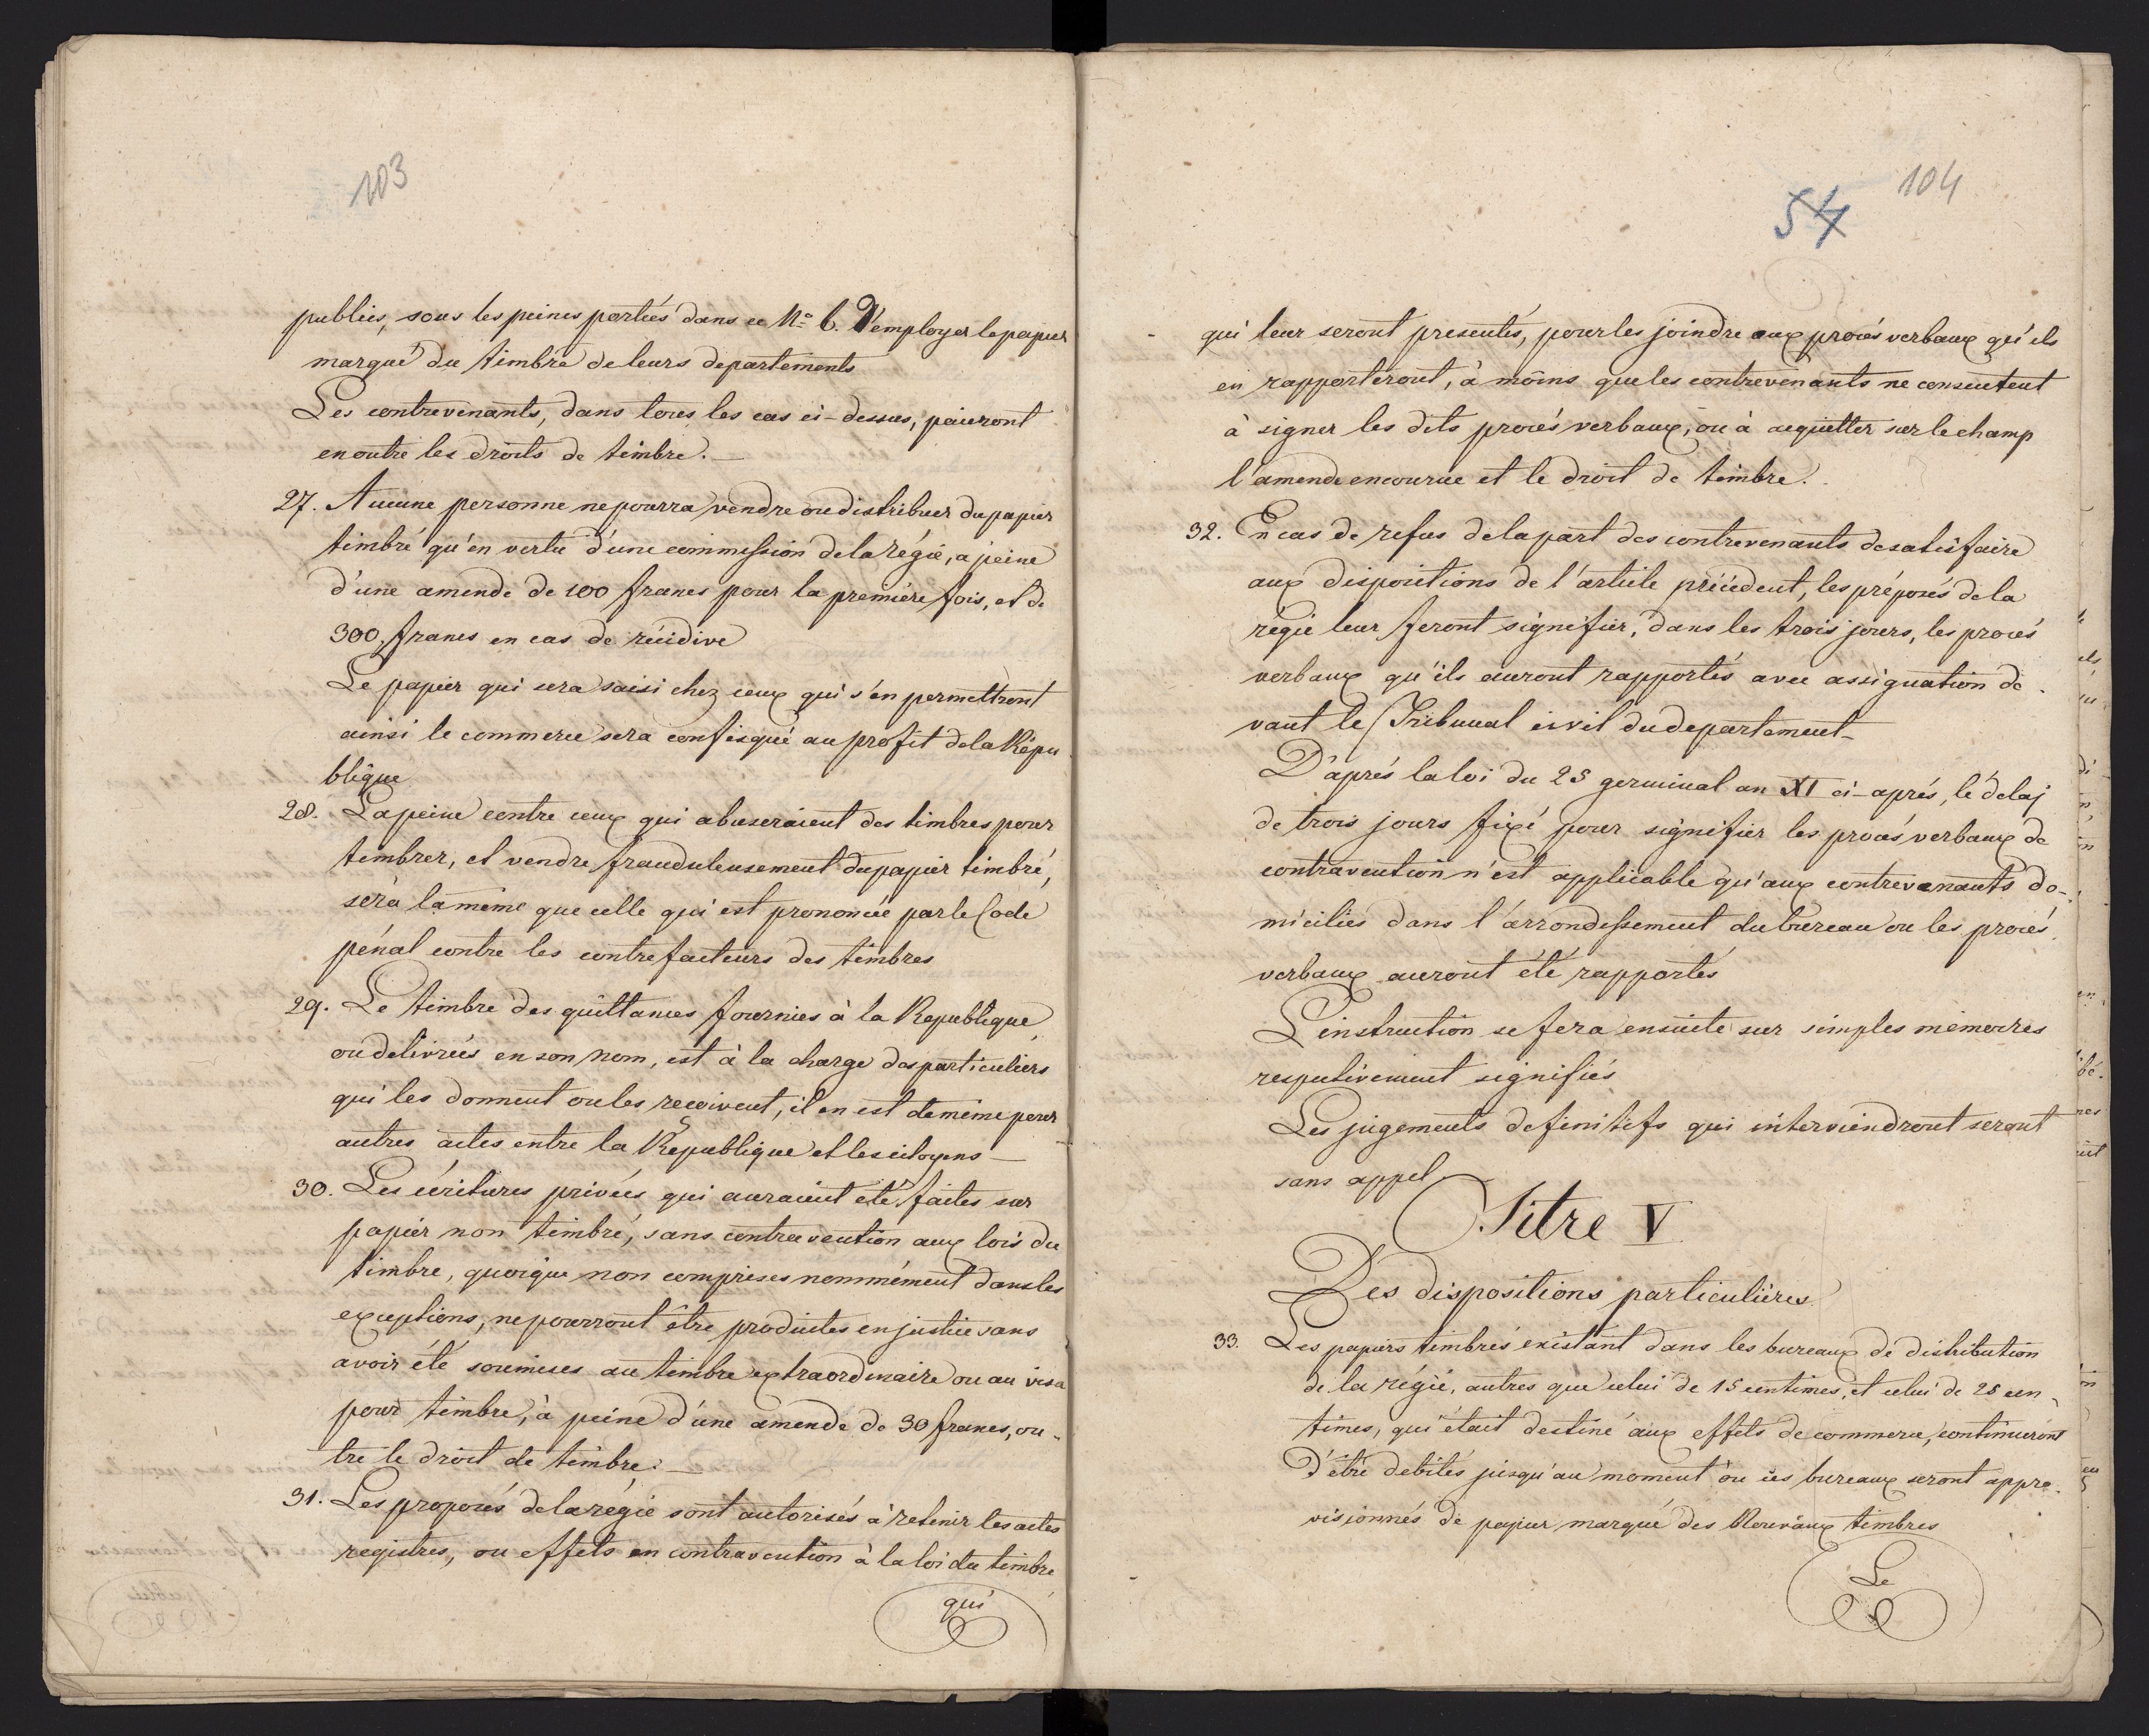 103
publics, sous les peines portées dans ce N.º 6. D'employer le papier
marqué du timbre de leurs departements
Les contrevenants, dans tous les cas ci-dessus, paieront
en outre les droits de timbre. —
27. Aucune personne ne pourra vendre ou distribuer du papier
timbré qu'en vertu d'une commission de la régie, a peine
d'une amende de 100 francs pour la première fois, et de
300 francs en cas de récidive
Le papier qui sera saisi chez ceux qui s'en permettront
ainsi le commerce sera confisqué au profit de la Répu
blique
28. La peine contre ceux qui abuseraient des timbres pour
timbrer, et vendre frauduleusement du papier timbré,
sera la même que celle qui est prononcée par le Code
pénal contre les contrefacteurs des timbres
29. Le timbre des quittances fournies à la Republique
ou delivrées en son nom, est à la charge des particuliers
qui les donnent ou les reçoivent, il en est de même pour
autres actes entre la Republique et les citoyens —
30. Les écritures privées qui auraient été faites sur
papier non timbré, sans contravention aux lois du
timbre, quoique non comprises nommément dans les
exceptions, ne pourront être produites en justice sans
avoir été soumises au timbre extraordinaire ou au visa
pour timbre, à peine d'une amende de 30 francs, ou-
tre le droit de timbre. —
31. Les proposés de la régie sont autorisés à retenir les actes
registres, ou effets en contravention à la loi du timbre
qui
104
54
qui leur seront presentés, pour les joindre aux procés verbaux qu'ils
en rapporteront, à moins que les contrevenants ne consentent
à signer les dits procés verbaux, ou à acquitter sur le champ
l'amende encourue et le droit de timbre.
32. En cas de refus de la part des contrevenants de satisfaire
aux dispositions de l'article précédent, les préposés de la
régie leur feront signifier, dans les trois jours, les procés
verbaux qu'ils auront rapportés avec assignation de
vant le Tribunal civil du departement —
D'aprés la loi du 25 germinal an XI ci-aprés, le délaj
de trois jours fixé pour signifier les procés verbaux de
contravention n'est applicable qu'aux contrevenants do-
miciliés dans l'arrondissement du bureau ou les procés
verbaux auront été rapportés
L'instruction se fera ensuite sur simples mémoires
respectivement signifiés
Les jugements definitifs qui interviendront seront
sans appel
Titre V
Des dispositions particulières
33. Les papiers timbrés existant dans les bureaux de distribution
de la régie, autres que celui de 15 centimes, et celui de 25 cen-
times, qui était destiné aux effets de commerce, continueront
d'être debités jusqu'au moment où ces bureaux seront appro-
visionnés de papier marqué des Nouveaux timbres
Le